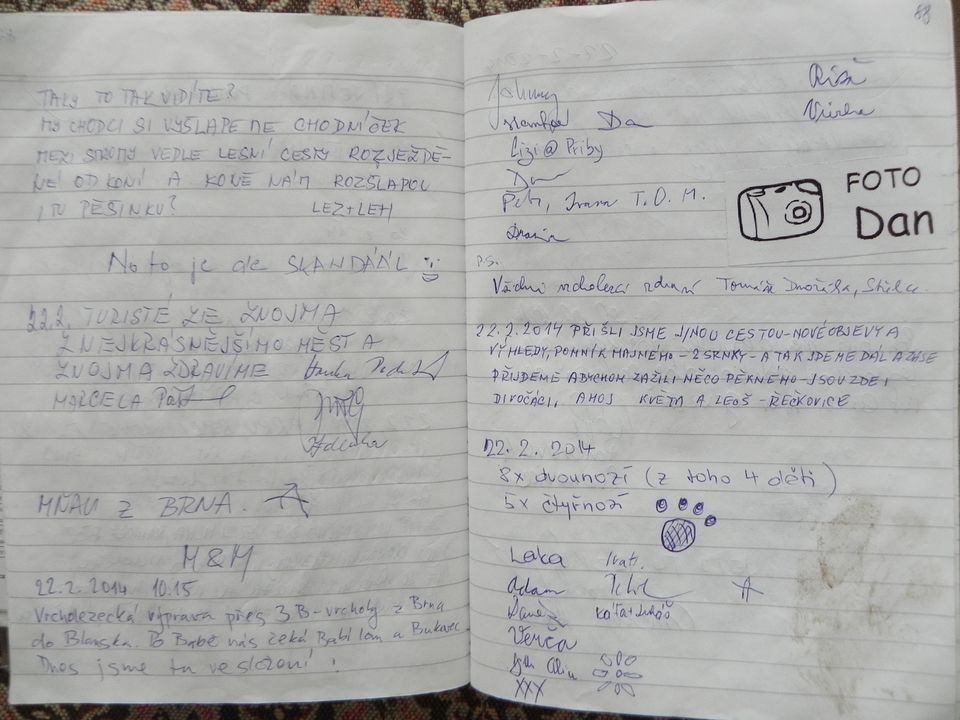 TAKY TO TAK VIDÍTE?
MY CHODCI SI VYŠLAPEME CHODNÍČEK
MEZI STROMY VEDLE LESNÍ CESTY ROZJEŽDĚ-
NÉ OD KONÍ A KONĚ NÁM ROZŠLAPOU
I TU PĚŠINKU? LEZ+LEH
No to je ale SKANDÁÁL
22.2. TURISTÉ ZE ZNOJMA
Z NEJKRÁSNĚJŠÍHO MĚSTA
ZNOJMA ZDRAVÍME
MARCELA
Zdenka
MŇAU Z BRNA.
M&M
22.2.2014 10.15
Vrcholezecká výprava přes 3 B-vrcholy z Brna
do Blanska. Po Babě nás čeká Babí lom a Bukovec
Dnes jsme tu ve složení:
88
Johnny
Lizi@Přiby
Petr, Ivana T.O.M.
P.S.
Všechni vrcholezci zdraví Tomáše Dvořáka,
FOTO
Dan
22.2.2014 PŘIŠLI JSME JINOU CESTOU-NOVÉ OBJEVY A
VÝHLEDY, POMNÍK HAJNÉHO - 2 SRNKY - A TAK JDEME DÁL A ZASE
PŘIJDEME ABYCHOM ZAŽILI NĚCO PĚKNÉHO - JSOU ZDE I
DIVOČÁCI, AHOJ KVĚTA A LEOŠ - ŘEČKOVICE
22.2.2014
8x dvounozí (z toho 4 děti)
5x čtyřnozí
Laka
Adam
Káťa+Lukáš
Verča
XXX